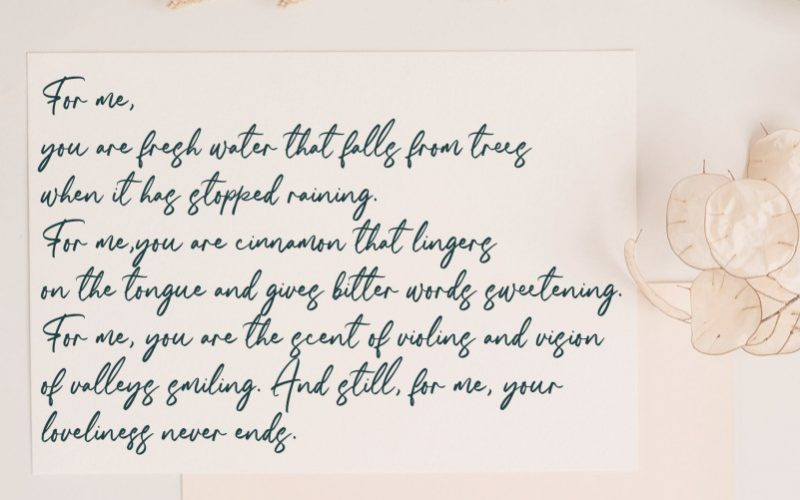 For me,
you are fresh water that falls from trees
when it has stopped raining.
For me,you are cinnamon that lingers
on the tongue and gives bitter words sweetening.
For me, you are the scent of violins and vision
of valleys smiling. And still, for me, your
loveliness never ends.